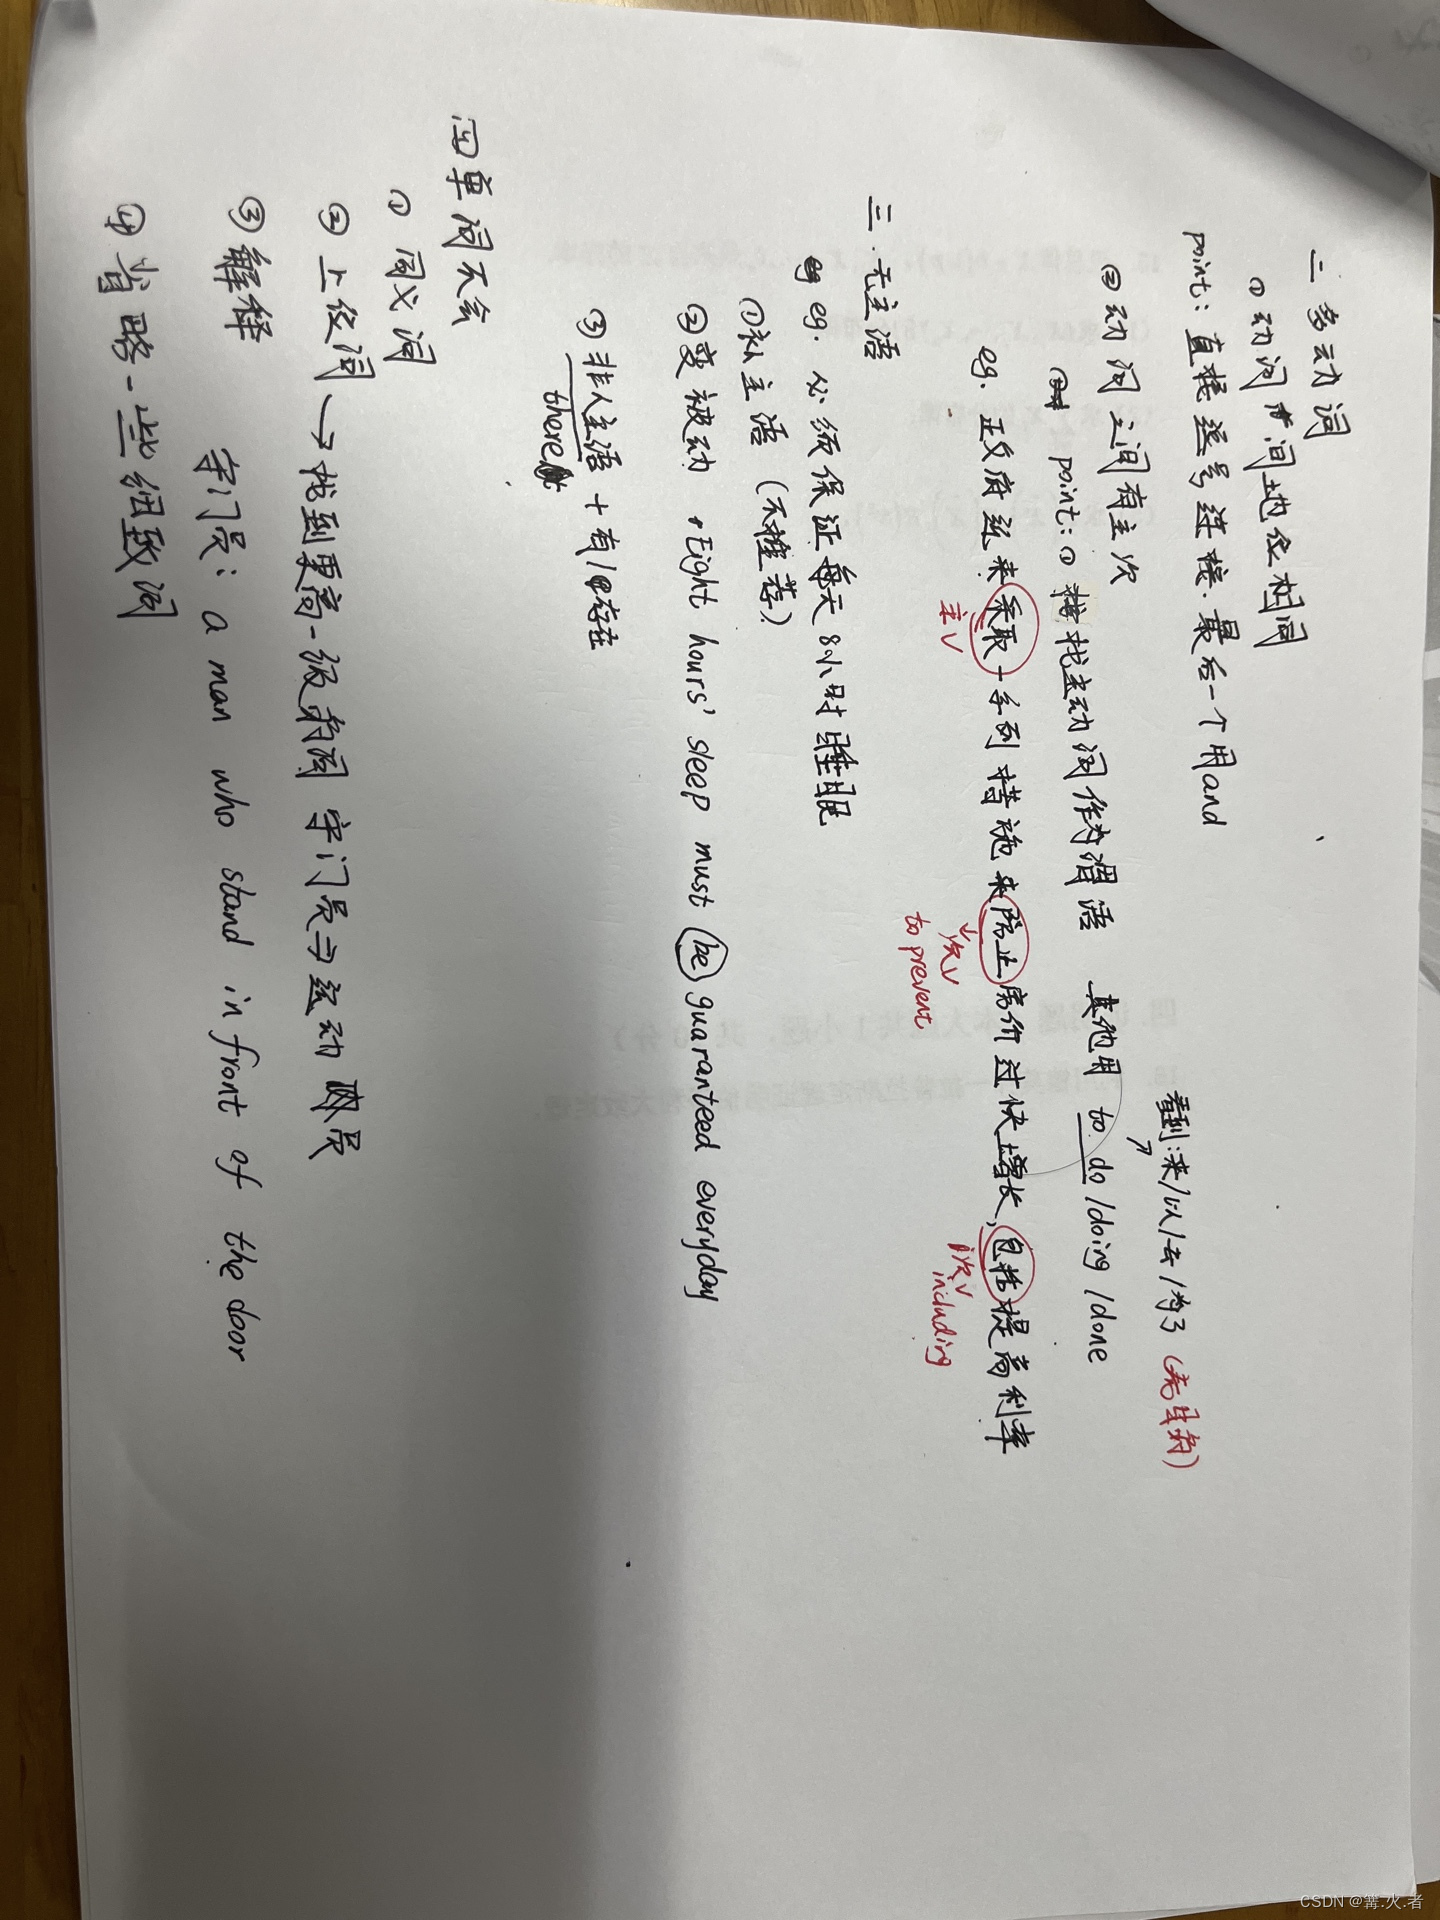 二 多动词
① 动词间地位相同
point: 直接逗号连接. 最后一个用and
看到:来/以/去/为了 (先月的)
② 动词之间有主次
point: ① 找主动词作为谓语 其他用 to do/doing/done
eg. 正文府近来采取一系列措施来防止房价过快增长, 包括提高利率
主V
次V
to prevent
次V
including
三.无主语
eg. 必须保证每天8小时睡眠
①补主语 (不推荐)
②变被动 . Eight hours' sleep must be guaranteed everyday
③ 非人主语 + 有/存在
there
四单词不会
① 同义词
② 上位词 → 找到更高一级的词 守门员与运动员
③ 解释
守门员: a man who stand in front of the door
④ 省略一些细致词
CSDN @篝.火.者